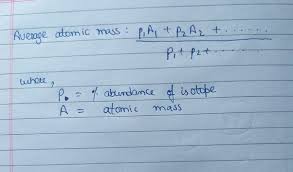 Average atomic mass : p₁A₁ + p₂A₂ + ......
p₁ + p₂ + ......
where,
P. = % abundance of isotope
A = atomic mass